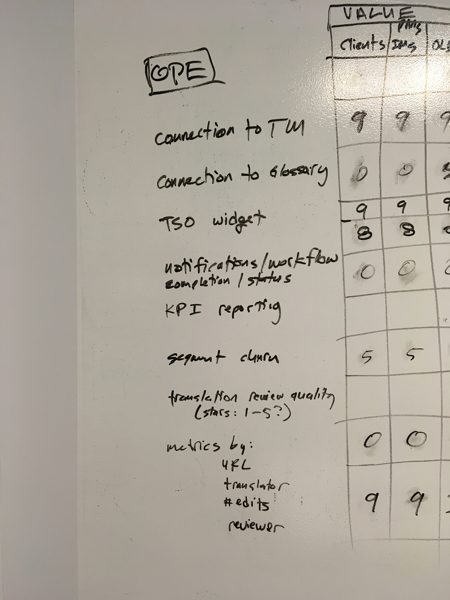 VALUE
Clients
IMs
OPE
connection to TM 9 9 9
connection to Glossary 0 0
TSO widget 9 9 9
8 8
notifications/workflow
completion/status 0 0 0
KPI reporting
segment churn 5 5
translation review quality
(stars: 1-5?)
metrics by: 0 0
URL
translator
# edits 9 9
reviewer